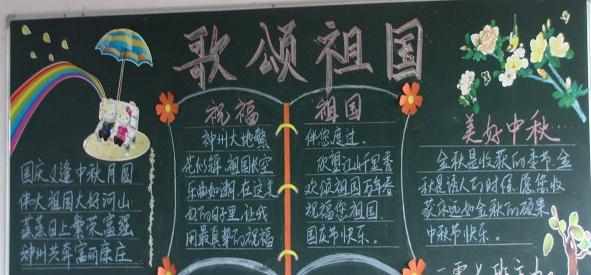 歌颂祖国
国庆又逢中秋月圆
伟大祖国大好河山
蒸蒸日上繁荣富强
神州共奔富丽康庄
祝福
神州大地繁
花似锦 祖国长空
乐曲如潮 在这
的日子里,让我
用最真挚的祝福
祖国
伴您度过。
万里香
欢颂祖国万年春
祝福您祖国.
国庆节快乐。
美好中秋…
金秋是收获的季节 金
秋是诱人的时候 愿您收
获永远如金秋的硕果
中秋节快乐。